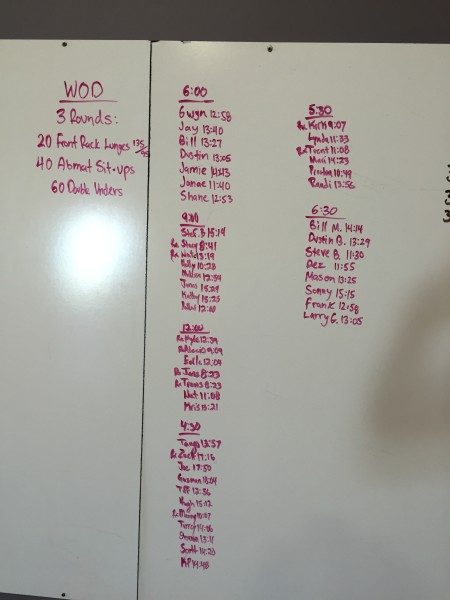 WOD
3 Rounds:
20 Front Rack Lunges 135/95
40 Abmat Sit-ups
60 Double Unders
6:00
Gwyn 12:58
Jay 13:40
Bill 13:27
Dustin 13:05
Jamie 14:13
Janae 11:40
Shane 12:53
9:00
Stef. B 15:14
Rx Stacy 8:41
Rx
Kelly 10:28
12:54
15:29
Kathy 15:25
12:00
12:00
Rx Kyle 12:39
9:09
12:04
Rx Jans 8:23
Rx Travis 8:23
Nat 11:08
13:21
4:30
Tanya 13:57
Rx Zach 17:16
Joe 17:50
Tiff 12:56
Hugh 15:12
Scott 14:20
KP 14:48
5:30
Rx Kirk 9:07
Lynda 11:33
Rx Trent 11:08
14:23
Preston 10:49
Randi 13:56
6:30
Bill M. 14:14
Dustin B. 13:29
Steve B. 11:30
Dez 11:55
Mason 13:25
Sonny 15:15
Frank 12:58
Larry G. 13:05